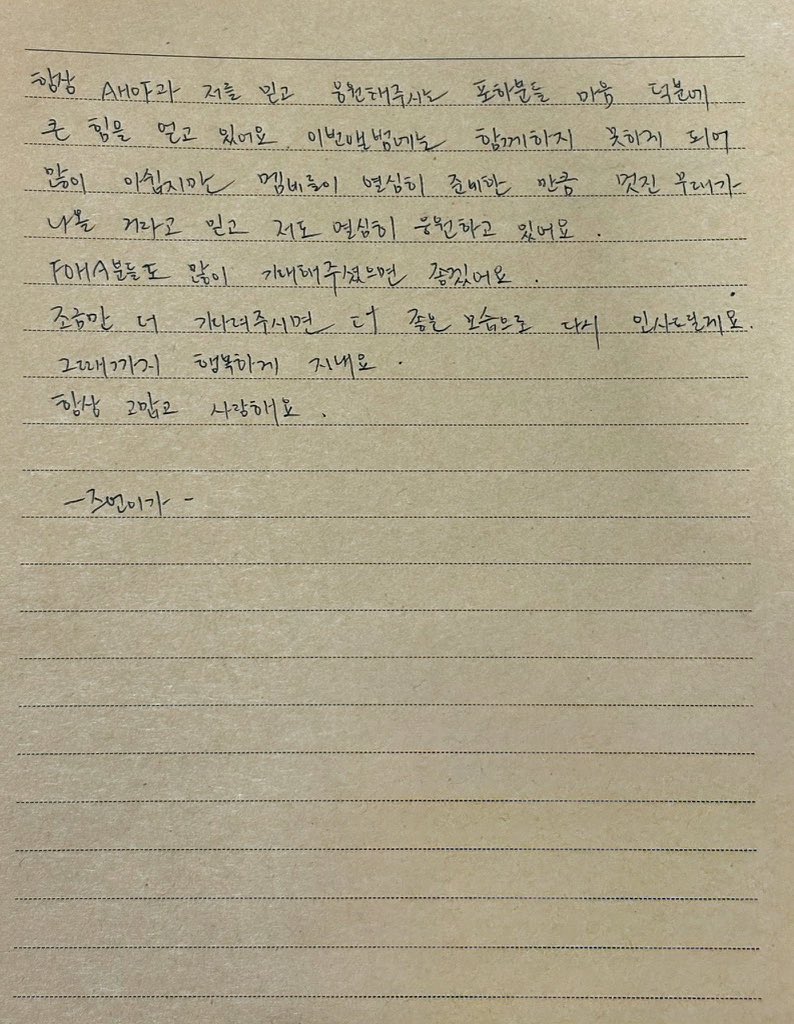 항상 AHOF과 저를 믿고 응원해주시는 포하분들 마음 덕분에
큰 힘을 얻고 있어요. 이번앨범에는 함께하지 못하게 되어
많이 아쉽지만 멤버들이 열심히 준비한 만큼 멋진 무대가
나올 거라고 믿고 저도 열심히 응원하고 있어요.
FOHA분들도 많이 기대해주셨으면 좋겠어요.
조금만 더 기다려주시면 더 좋은 모습으로 다시 인사드릴게요.
그때까지 행복하게 지내요.
항상 고맙고 사랑해요.
-즈언이가-